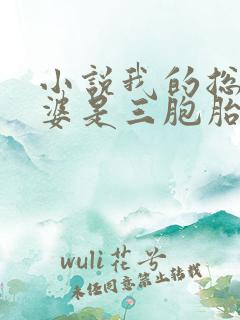 小说我的总
婆是三胞胎
wuli花兮
未经同意禁止转载